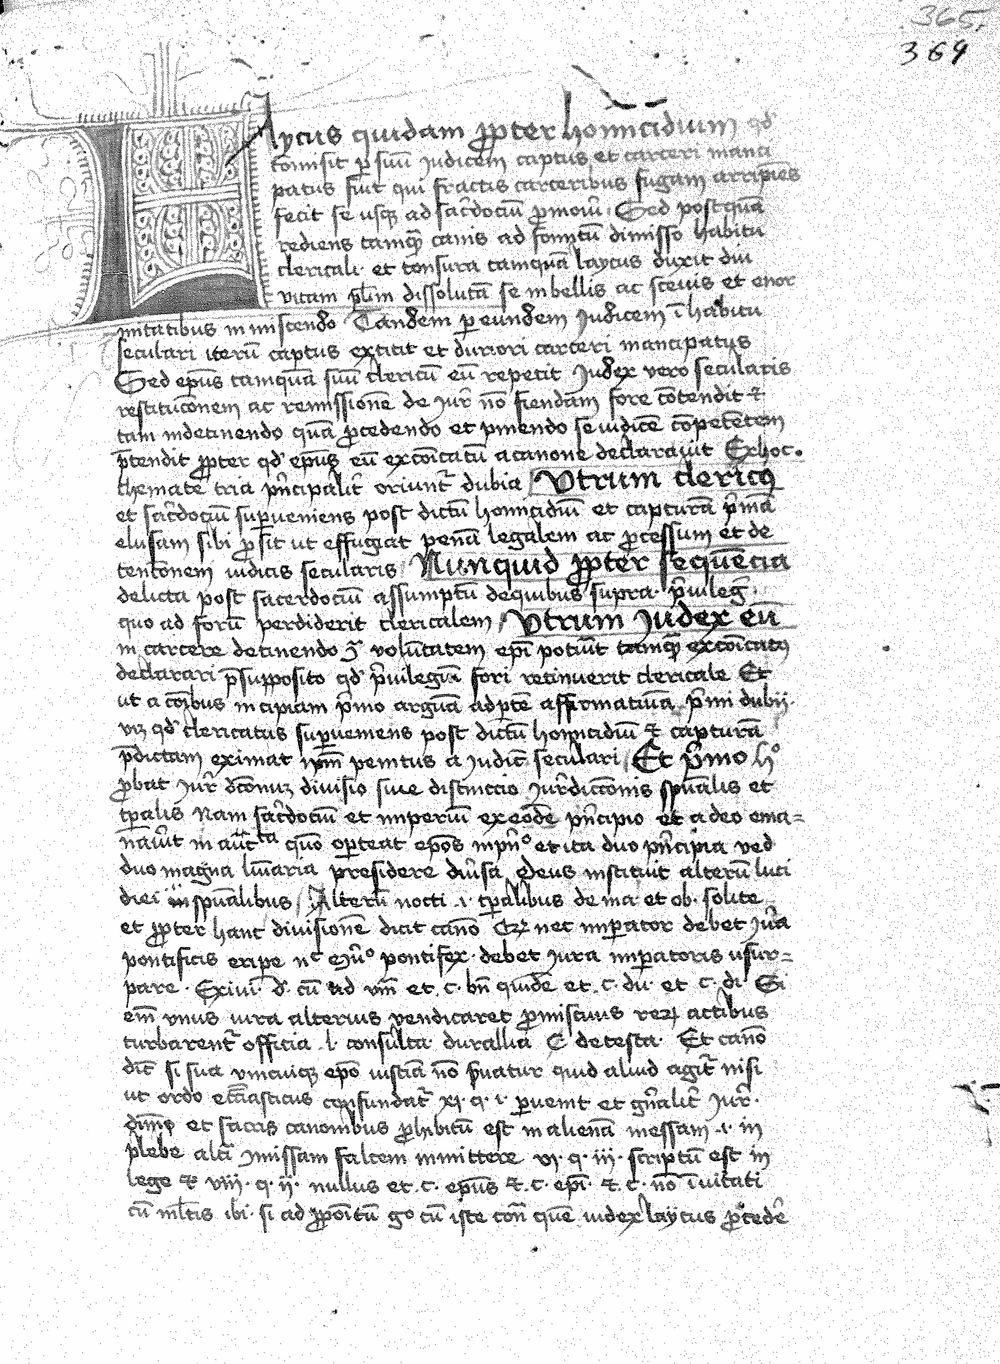 365.
364
Laycus quidam propter homicidium qd
comisit per suu judicem captus et carceri manci
patus fuit qui fractis carceribus fugam arripies
fecit se usq ad sacdociu pmoui Sed postqua
rediens tamq canis ad fomitu dimisso habitu
clericali et tonsura tamqua laycus duxit diu
vitam plim dissoluta se in bellis ac scevis et enor
mitatibus in miscendo Tandem per eundem Judicem i habitu
seculari iteru captus extitit et duriori carceri mancipatus
Sed epus tamqua suu clericu eu repetit Judex vero secularis
restitucionem ac remissione de jur no fiendam fore cotendit et
tam indetinendo qua pcedendo et pniendo se iudice competetem
ptendit propter qd epus eu excoicatu a canone declarauit Ex hoc
themate tria pncipalit oriunt dubia Vtrum clericq
et sacdociu superueniens post dictu homicidiu et captura pma
elusam sibi psit ut effugiat pena legalem ac pcessum et de
tentonem iudicis secularis Nunquid propter sequecia
delicta post sacerdociu assumptu de quibus supra priuileg
quo ad foru perdiderit clericalem Vtrum Judex eu
in carcere detinendo voluntatem epi potiut tamq excoicatus
declarari psupposito qd priuilegiu fori retinuerit clericale Et
ut a coibus incipiam pmo argua ad pte affirmatiua pmi dubii
viz qd clericatus superueniens post dictu homicidiu et captura
pdictam eximat ipm penitus a judice seculari Et primo h
probat jur diconu divisio siue distinctio jurdictionis spualis et
tpalis Nam sacdociu et imperiu ex eode pncipio et a deo ema=
nauit in auct quo oporteat epos inpn et ita duo pncipia ved
duo magna luiaria presidere diusa Deus instituit alteru luci
diei in spualibus Alteru nocti i tpalibus de ma et ob solite
et propter hanc divisione dicit cano nec imperator debet jura
pontificis eripe nec pontifex debet jura imperatoris usur=
pare Exiui d cu ad vm et c bn quide et c du et c di Si
em vnus iura alterius vendicaret pmiscuus actibus
turbarent officia l consulta durallia C de testa Et cano
dict si sua vnicuiq epo iusticia no pruatur quid aliud agit nisi
ut ordo ecclasticus confundat xj q i puenit et gnalit jur
diuino et sacris canonibus prohibitu est in aliena messam i in
plebe alti missam falcem inmittere vj q iij scriptu est in
lege et viiij q ij nullus et c epus et c epi et c no iuitati
cu mltis ibi si ad pponitu go cu iste quem iudex laycus pcede